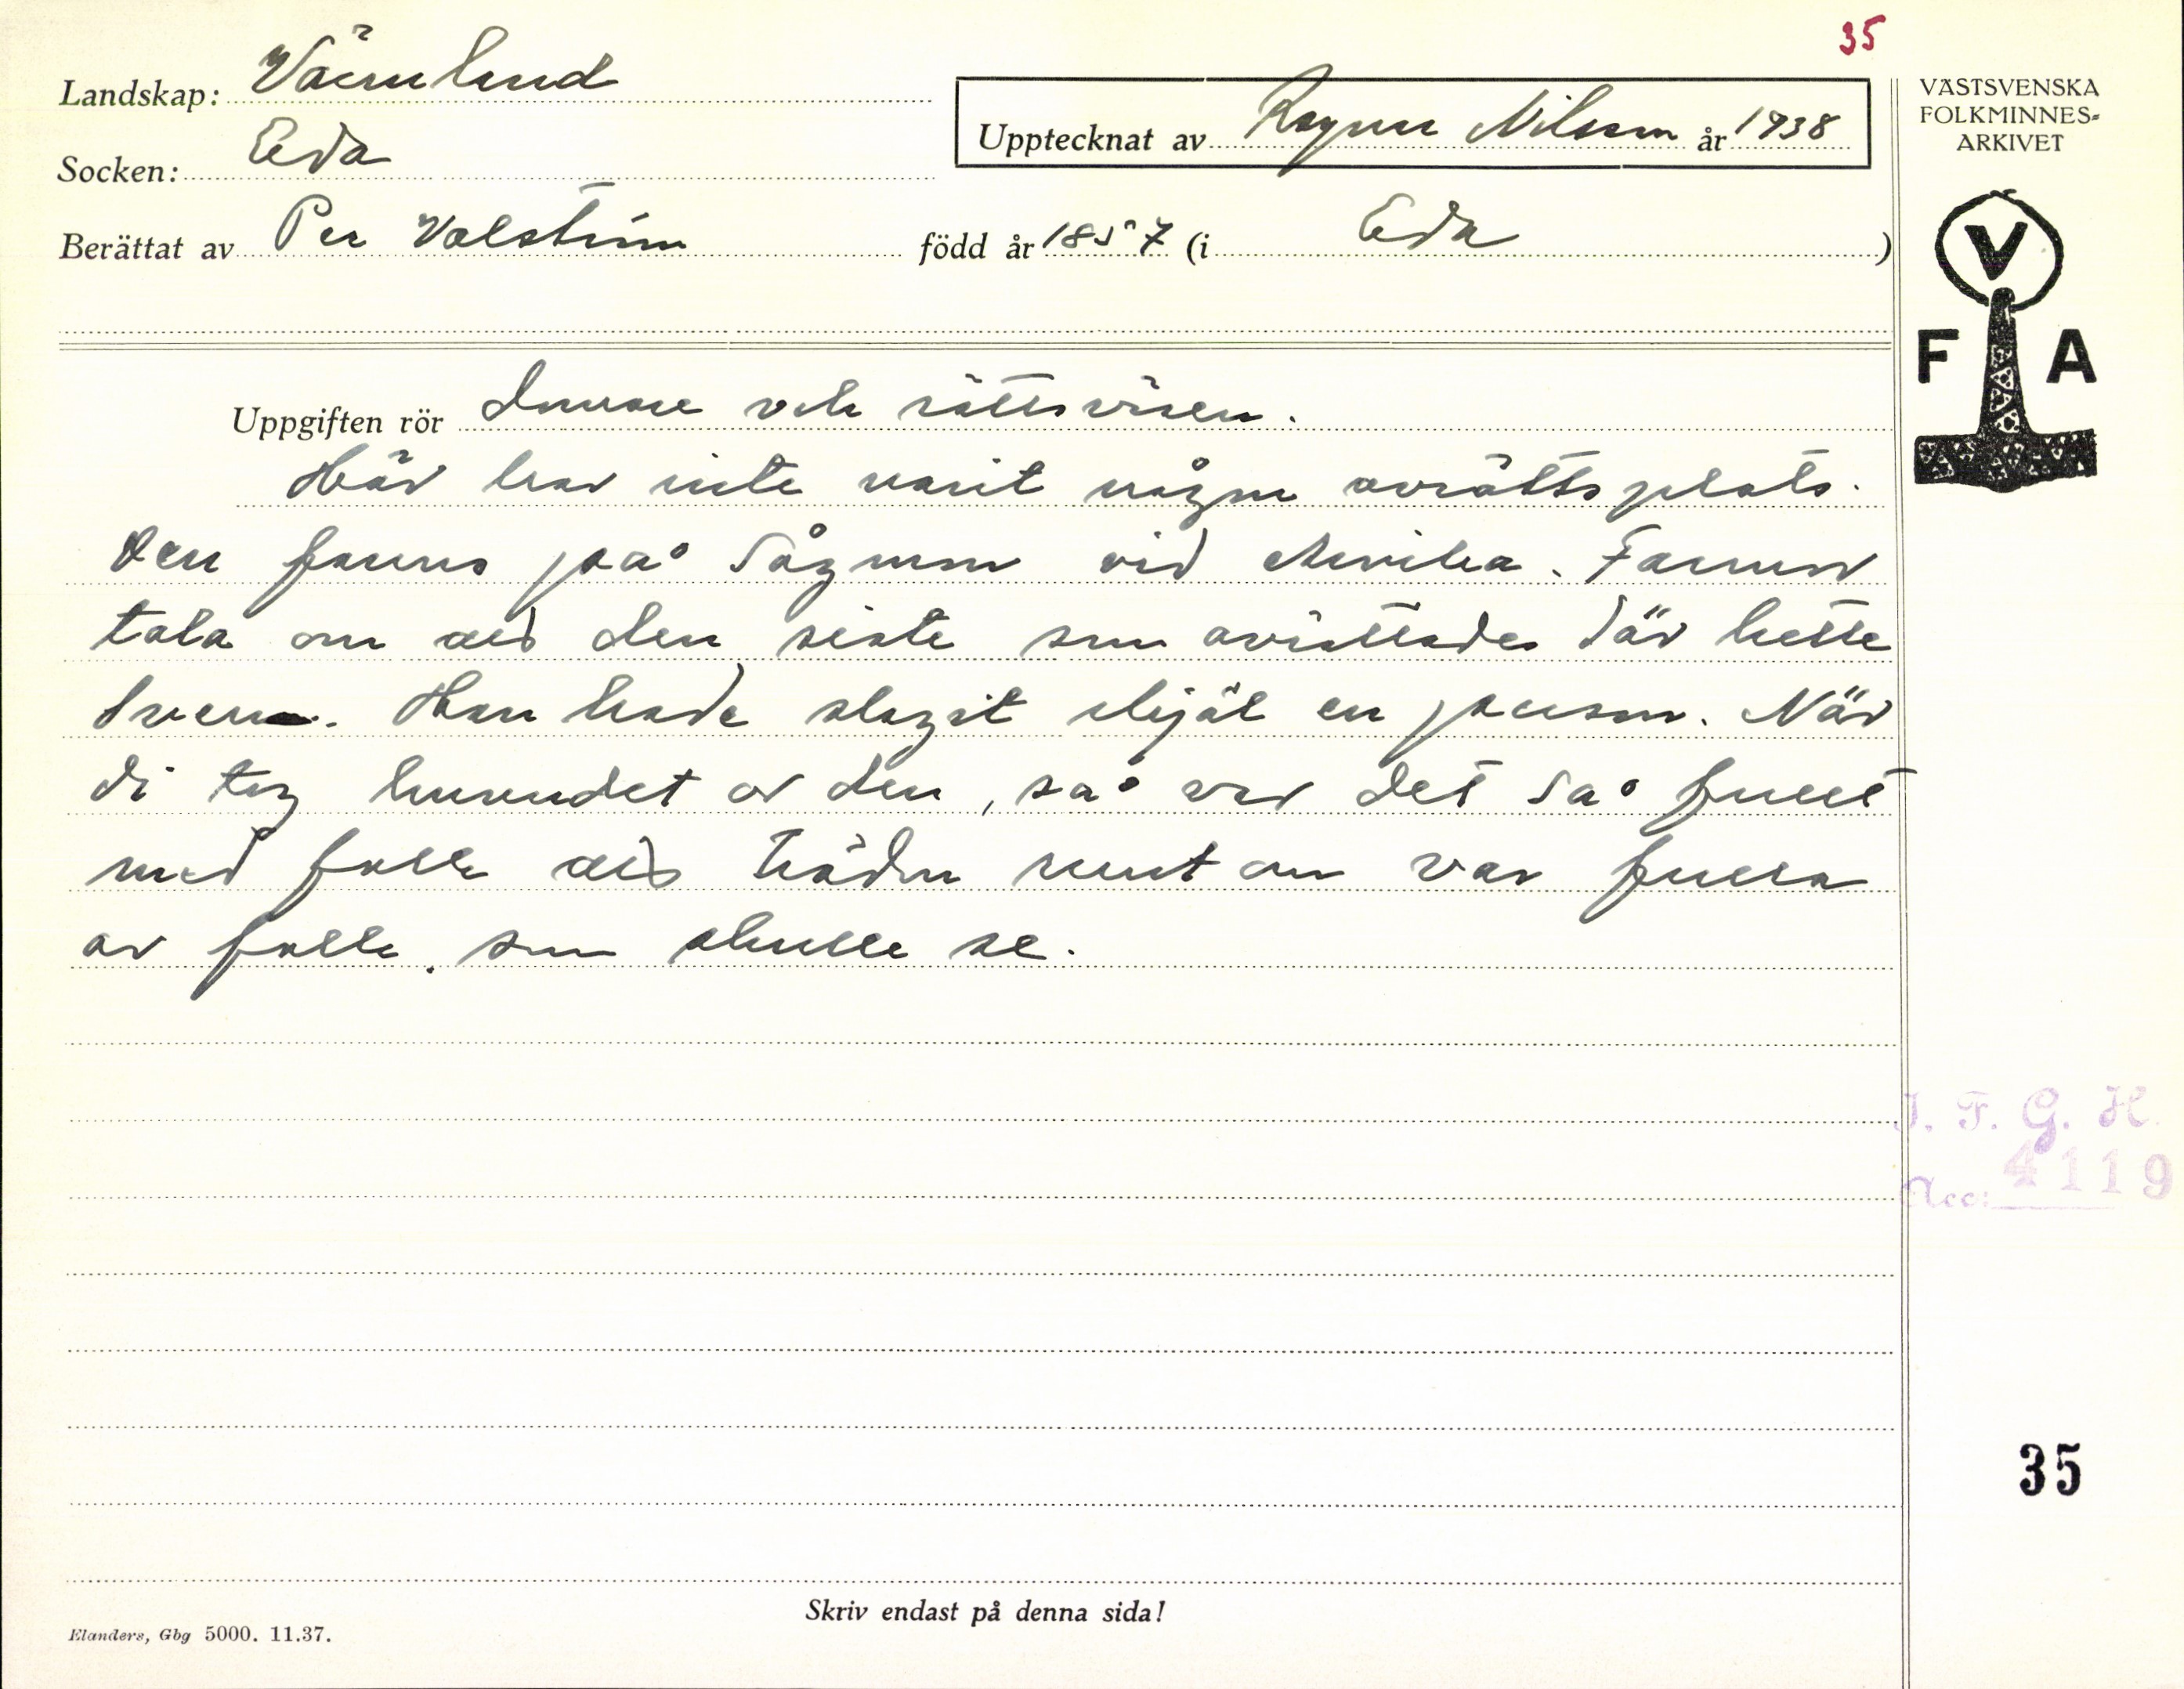 35
Landskap: Värmland
Upptecknat av Ragnar Nilsson år 1938
Socken: Eda
Berättat av Per Valström född år 1857 (i Eda)
VÄSTSVENSKA
FOLKMINNES=
ARKIVET
V
F A
Uppgiften rör domare och rättsväsen.
Här har inte varit någon avrättsplats.
Den fanns på Sågmon vid Arvika. Farmor
tala om att den siste som avrättades där hette
Sven. Han hade slagit ihjäl en person. När
di tog huvudet av den, så var det så fullt
med folk att träden runt om var fulla
av folk, som skulle se.
I. F. G. H.
Acc: 4119
35
Skriv endast på denna sida!
Elanders, Gbg 5000. 11.37.